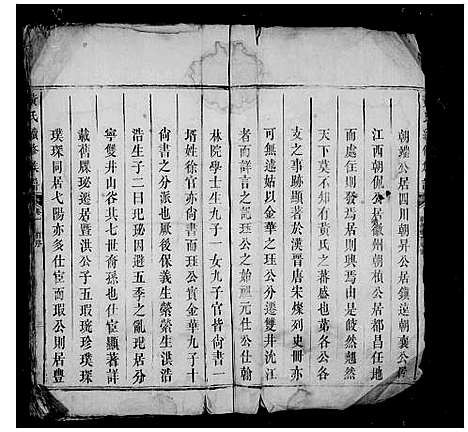 朝㙫公居四川朝昇公居鎮遠朝襄公居
江西朝佩公居徽州朝楨公居都昌任地
而處任則發焉居則興焉由是皎然翹然
天下莫不知有黃氏之蕃盛也第各公各
支之事跡顯著於漢晉唐宋燦列史冊亦
可無遺姑以金華之玨公分遷雙井沈江
者而詳言之記玨公之始祖元仕公仕翰
林院學士生九子一女九子官皆尚書一
壻姓徐官亦尚書而玨公實金華九子十
尚書之分派也厥後保義生縈縈生湛浩
浩生子二日玘珌因避五季之亂玘居分
寧雙井山谷共七世裔孫也仕宦顯著詳
載舊牒珌遷居暨洪公子五瑕珫珍璞琛
璞琛同居弋陽亦多仕宦而瑕公則居豐
黃氏續修族譜